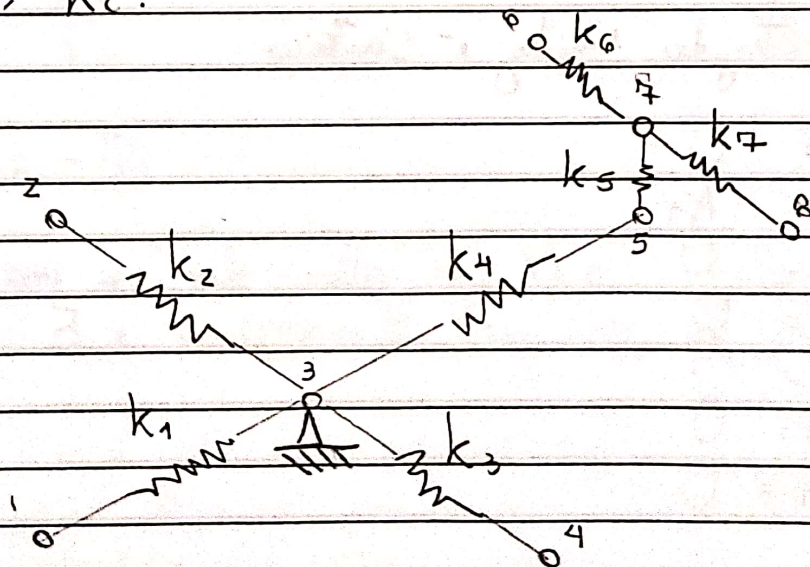 6 k6
7
k7
k5
8
2
5
k2
k4
3
k1
k3
1
4